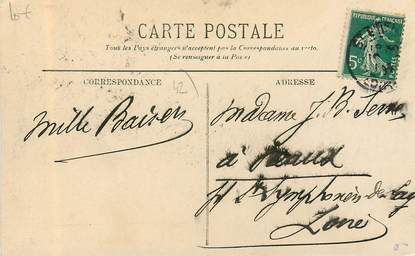 Lot
CARTE POSTALE
Tous les Pays étrangers n'acceptent pas la Correspondance au recto.
(Se renseigner à la Poste)
CORRESPONDANCE
ADRESSE
42
5c
Mille Baisers
Madame J. B.
à
St Symphorien de Lay
Loire